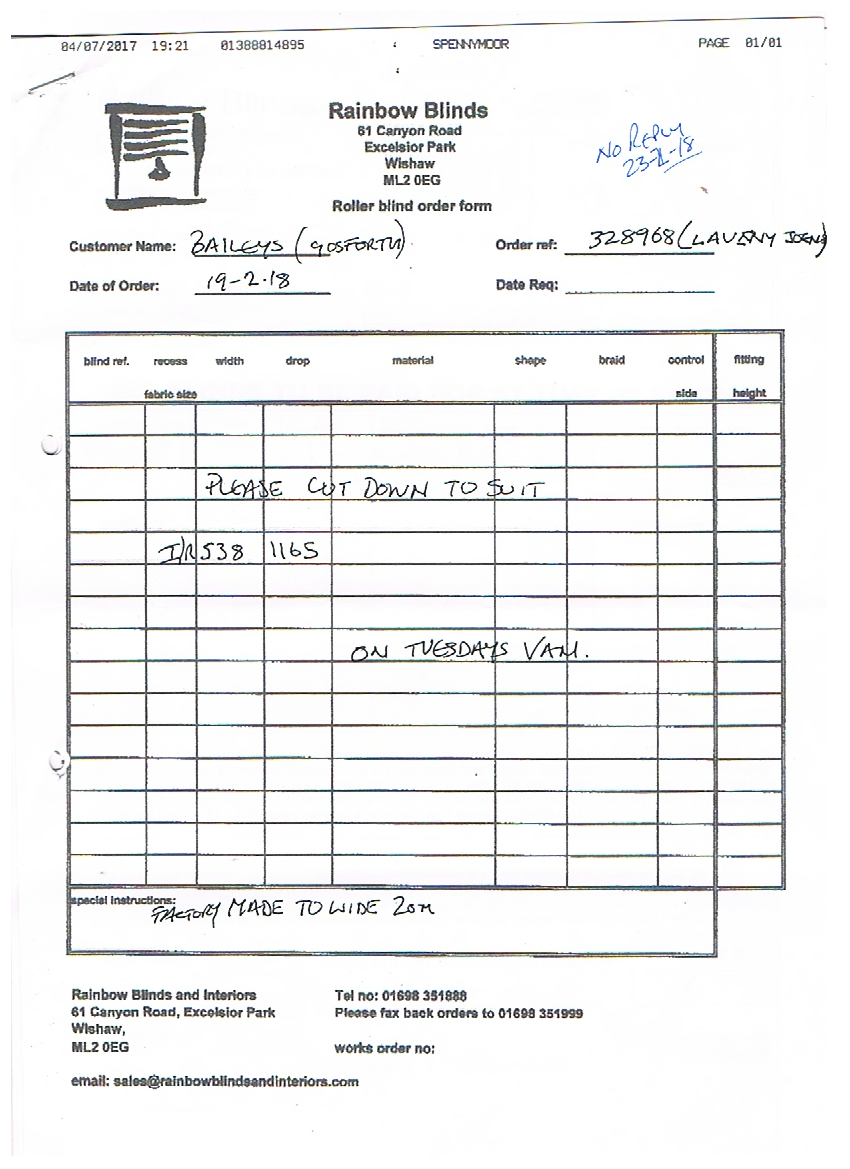 04/07/2017 19:21 01388814895 SPENNYMOOR PAGE 01/01
Rainbow Blinds
61 Canyon Road
Excelsior Park
Wishaw
ML2 0EG
NO REPLY
Roller blind order form
Customer Name: BAILEYS (GOSFORTH) Order ref: 328968
Date of Order: 19-2-18 Date Req:
blind ref. recess width drop material shape braid control fitting
fabric size side height
PLEASE CUT DOWN TO SUIT
I/R 538 1165
ON TUESDAYS VAN.
special instructions:
FACTORY MADE TO WIDE
Rainbow Blinds and Interiors Tel no: 01698 351888
61 Canyon Road, Excelsior Park Please fax back orders to 01698 351999
Wishaw,
ML2 0EG works order no:
email: sales@rainbowblindsandinteriors.com